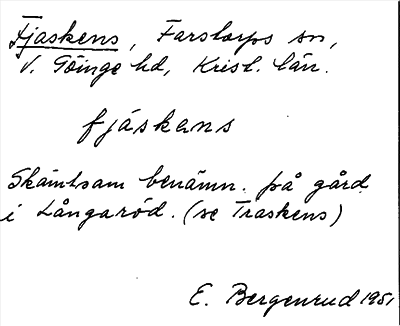 Fjaskens, Farstorps sn,
V. Göinge hd, Krist. län.
fjáskans
Skämtsam benämn. på gård
i Långaröd. (se Traskens)
E. Bergenrud 1951